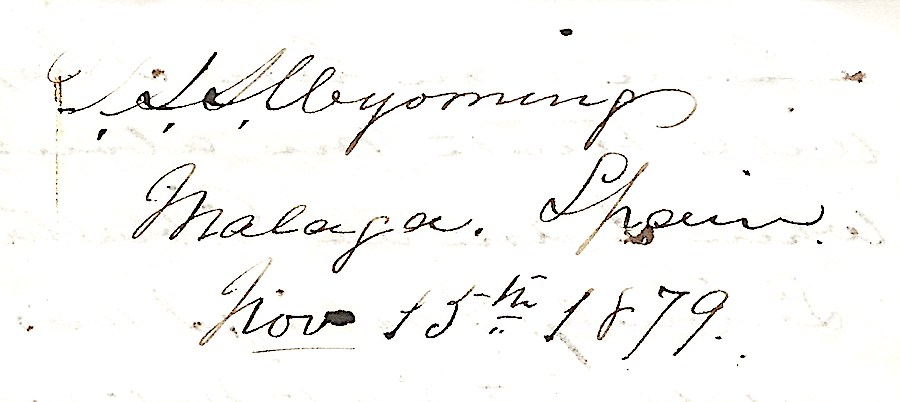 U.S.S. Wyoming
Malaga. Spain.
Nov 15th 1879.